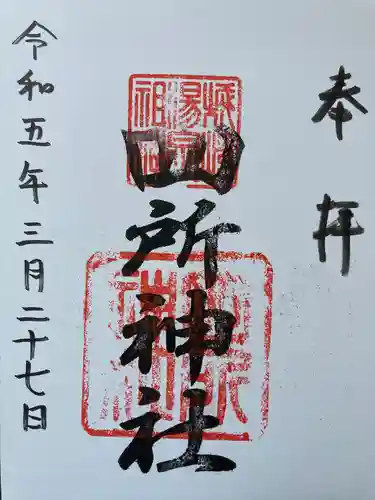 奉拝
山所神社
令和五年三月二十七日